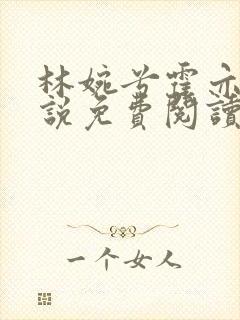 林婉兮霍亦
說免費閱讀
一个女人